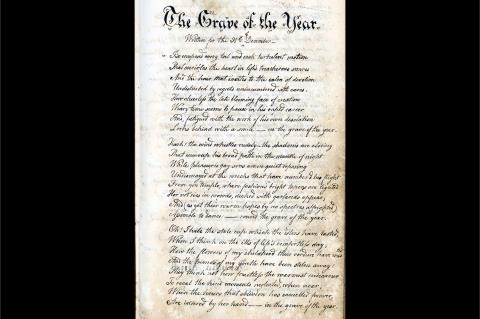 The Grave of the Year.
Written for the 31st December
Be composed every toil and each turbulent motion
That encircles the heart in life's treacherous snares
And the hour that invites to the calm of devotion
Undisturbed by regrets unincumbered with cares.
How cheerless the late blooming face of creation
Weary Time seems to pause in his rapid career
And, fatigued with the work of his own desolation
Looks behind with a smile — on the grave of the year.
Hark! the wind whistles rudely – the shadows are closing
That enwrap his broad path in the mantle of night
While pleasure's gay sons are in quiet reposing
Undismayed at the wrecks that have numbered his flight
From yon temple, where fashion's bright tapers are lighted
Her votaries in crowds, decked with garlands appear,
And, as yet their warm hopes by no spectres affrighted,
Assemble to dance — round the grave of the year.
Oh! I hate the stale cup which the idlers have tasted,
When I think on the ills of life's comfortless day;
How the flowers of my childhood their verdure have
And the friends of my youth have been stolen away!
They think not how fruitless the warmest endeavour
To recal the kind moments neglected, when near,
When the hours that oblivion has cancelled forever,
Are interred by her hand — in the grave of the year.